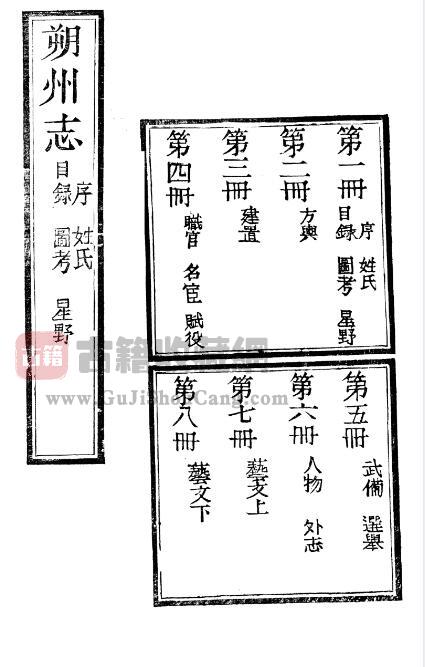 朔州志
序 姓氏
目録 圖考 星野
第一冊
序 姓氏
目録 圖考 星野
第二冊
方輿
第三冊
建置
第四冊
職官 名宦 賦役
第五冊
武備 選舉
第六冊
人物 外志
第七冊
藝文上
第八冊
藝文下
古籍
古籍收藏網
www.GuJiShouCang.com